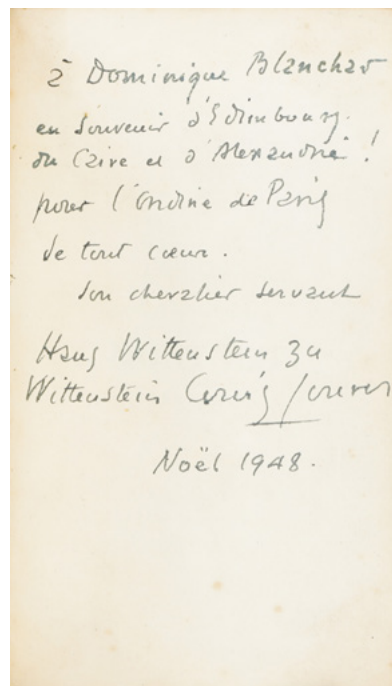 à Dominique Blanchar
en souvenir d'Edimbourg.
du Caire et d'Alexandrie !
pour l'Ondine de Paris
de tout cœur.
son chevalier servant
Hans Wittenstein zu
Wittenstein Louis Jouvet
Noël 1948.